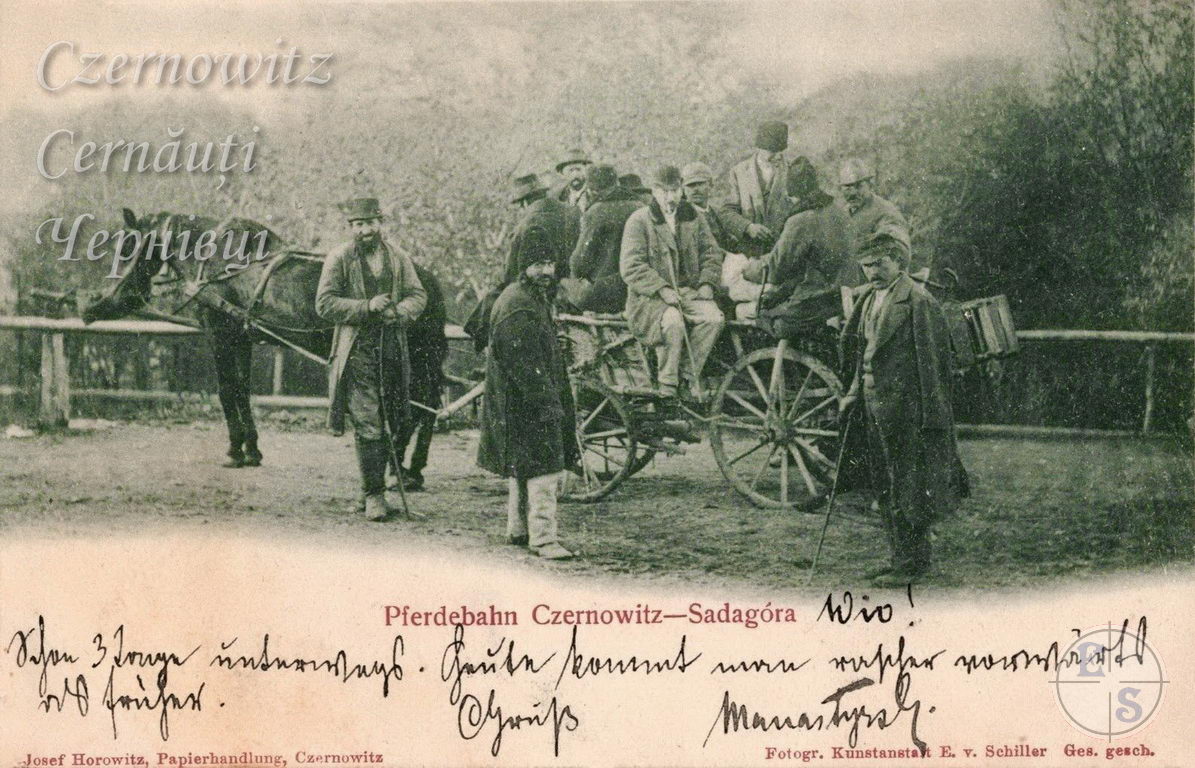 Czernowitz
Cernăuți
Чернівці
Pferdebahn Czernowitz—Sadagóra Wio!
Schon 3 Tage unterwegs. Heute kommt man rascher vorwärts
als früher.
Gruß
Josef Horowitz, Papierhandlung, Czernowitz
Fotogr. Kunstanstalt E. v. Schiller Ges. gesch.
E
S